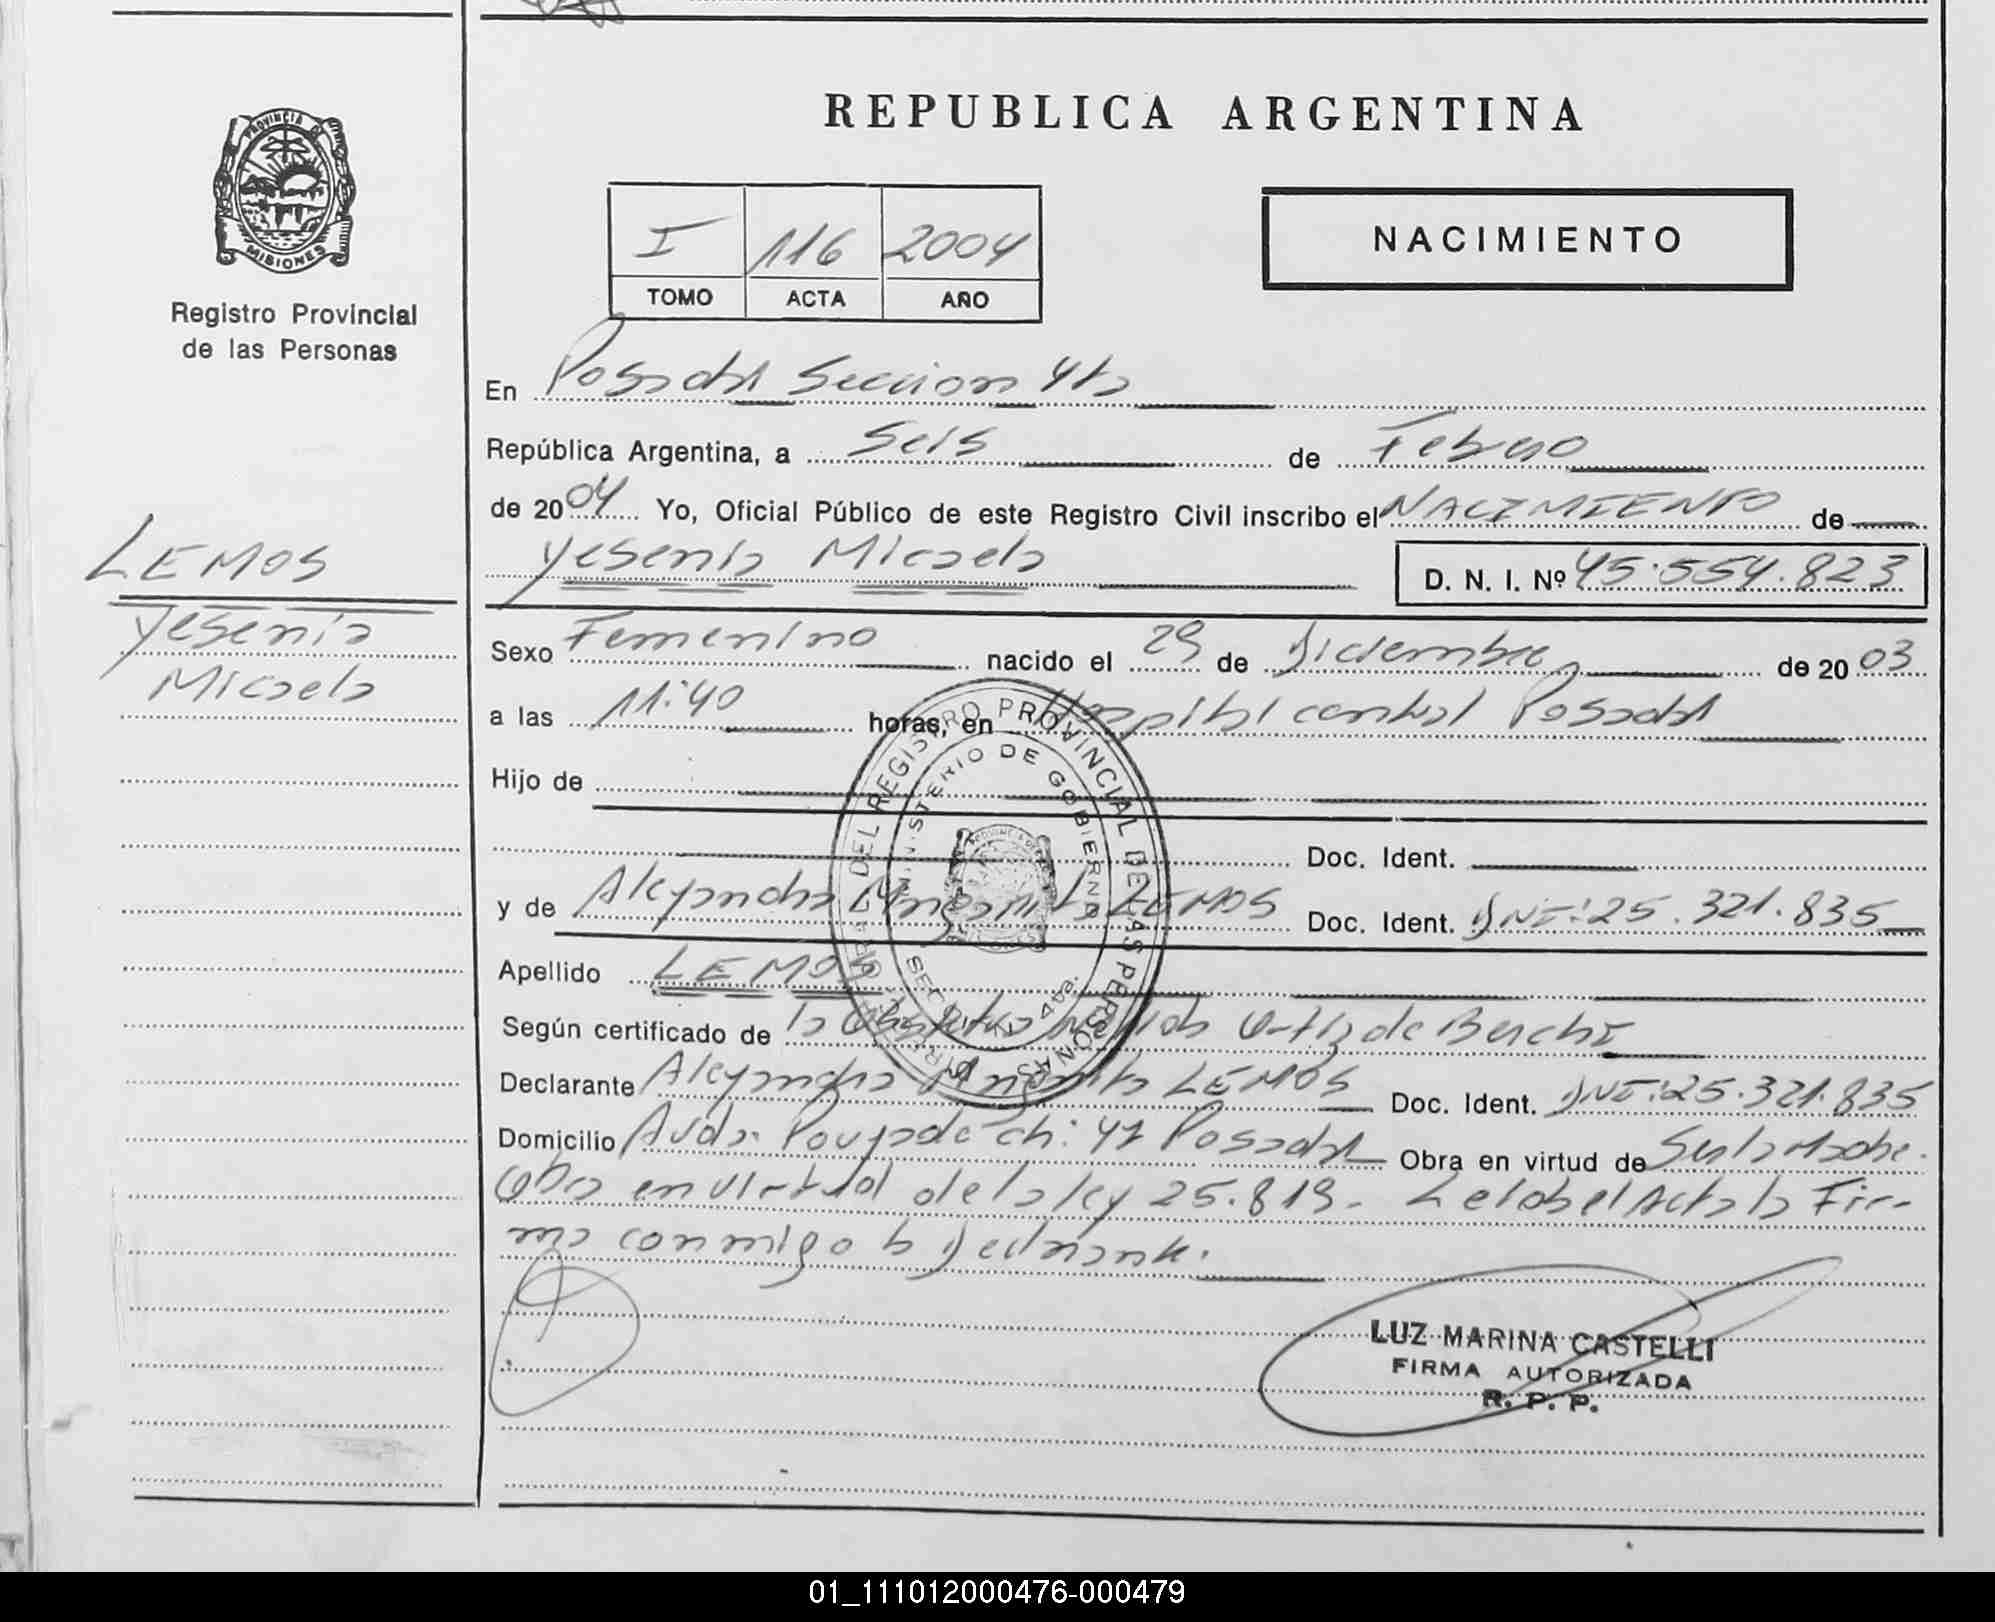 REPUBLICA ARGENTINA
PROVINCIA DE MISIONES
Registro Provincial
de las Personas
I 116 2004
TOMO ACTA AÑO
NACIMIENTO
En Posadas Seccion 4ta
República Argentina, a Seis de Febrero
de 2004 Yo, Oficial Público de este Registro Civil inscribo el NACIMIENTO de
Yesenia Micaela D. N. I. Nº 45.554.823
LEMOS
Yesenia
Micaela
Sexo Femenino nacido el 29 de Diciembre de 2003
a las 11:40 horas, en Hospital central Posadas
Hijo de
Doc. Ident.
y de Alejandra Margarita LEMOS Doc. Ident. DNI: 25.321.835
Apellido LEMOS
Según certificado de la Obstetra Ortiz de Berchi
Declarante Alejandra Margarita LEMOS Doc. Ident. DNI: 25.321.835
Domicilio Avda. Poujade Ch: 41 Posadas Obra en virtud de Ser la Madre.
Obra en virtud de la ley 25.819. Leida el Acta la Fir-
ma conmigo la Declarante.
DEL REGISTRO PROVINCIAL DE LAS PERSONAS
MINISTERIO DE GOBIERNO
SECCION 4ta.
LUZ MARINA CASTELLI
FIRMA AUTORIZADA
R. P. P.
01_111012000476-000479